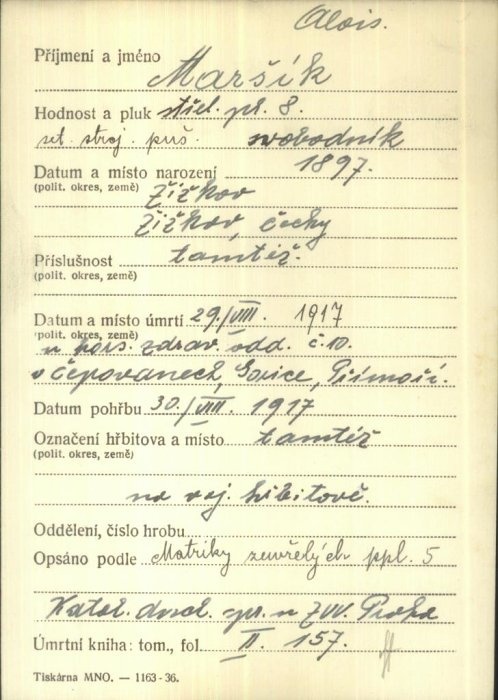 Alois.
Příjmení a jméno Maršík
Hodnost a pluk střel. pl. 8.
set. stroj. puš. svobodník
Datum a místo narození 1897.
(polit. okres, země) Žižkov
Žižkov, čechy
Příslušnost tamtéž.
(polit. okres, země)
Datum a místo úmrtí 29./VIII. 1917
(polit. okres, země)
u hors. zdrav. odd. č. 10.
v Čepovanech, Gorice, Přímoří.
Datum pohřbu 30./VIII. 1917
Označení hřbitova a místo tamtéž
(polit. okres, země)
na voj. hřbitově.
Oddělení, číslo hrobu
Opsáno podle Matriky zemřelých ppl. 5
Katol. duch. spr. u ZVV. Praha
Úmrtní kniha: tom., fol. II. 157.
Tiskárna MNO. — 1163-36.